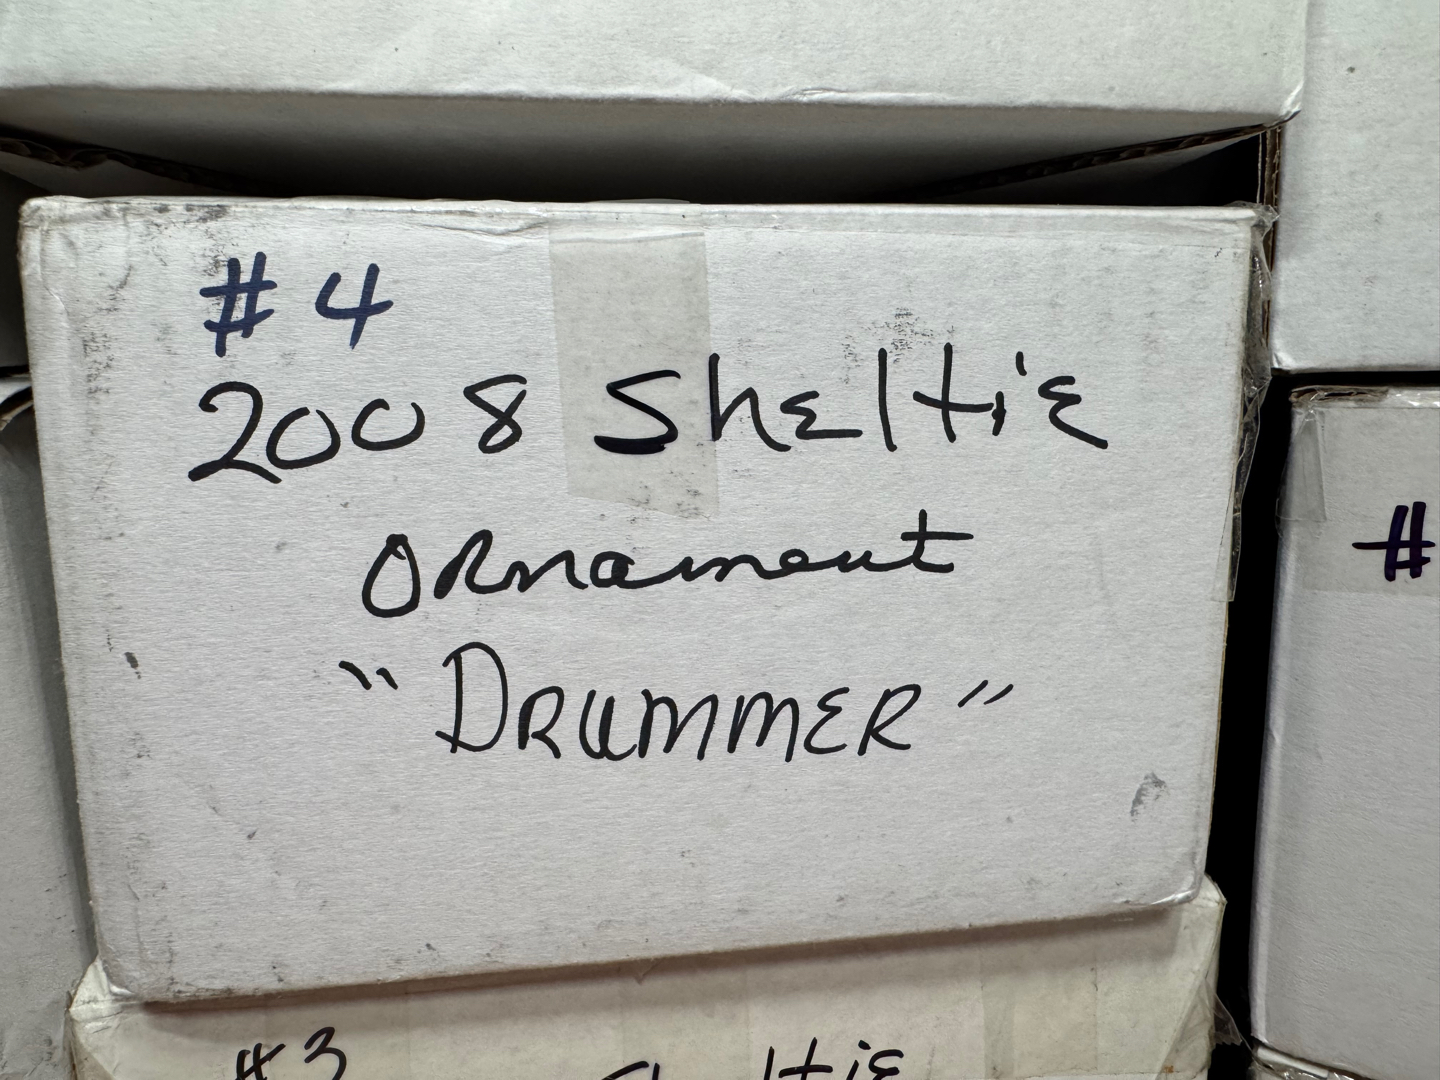 #4
2008 Sheltie
Ornament
"DRUMMER"
#
#3